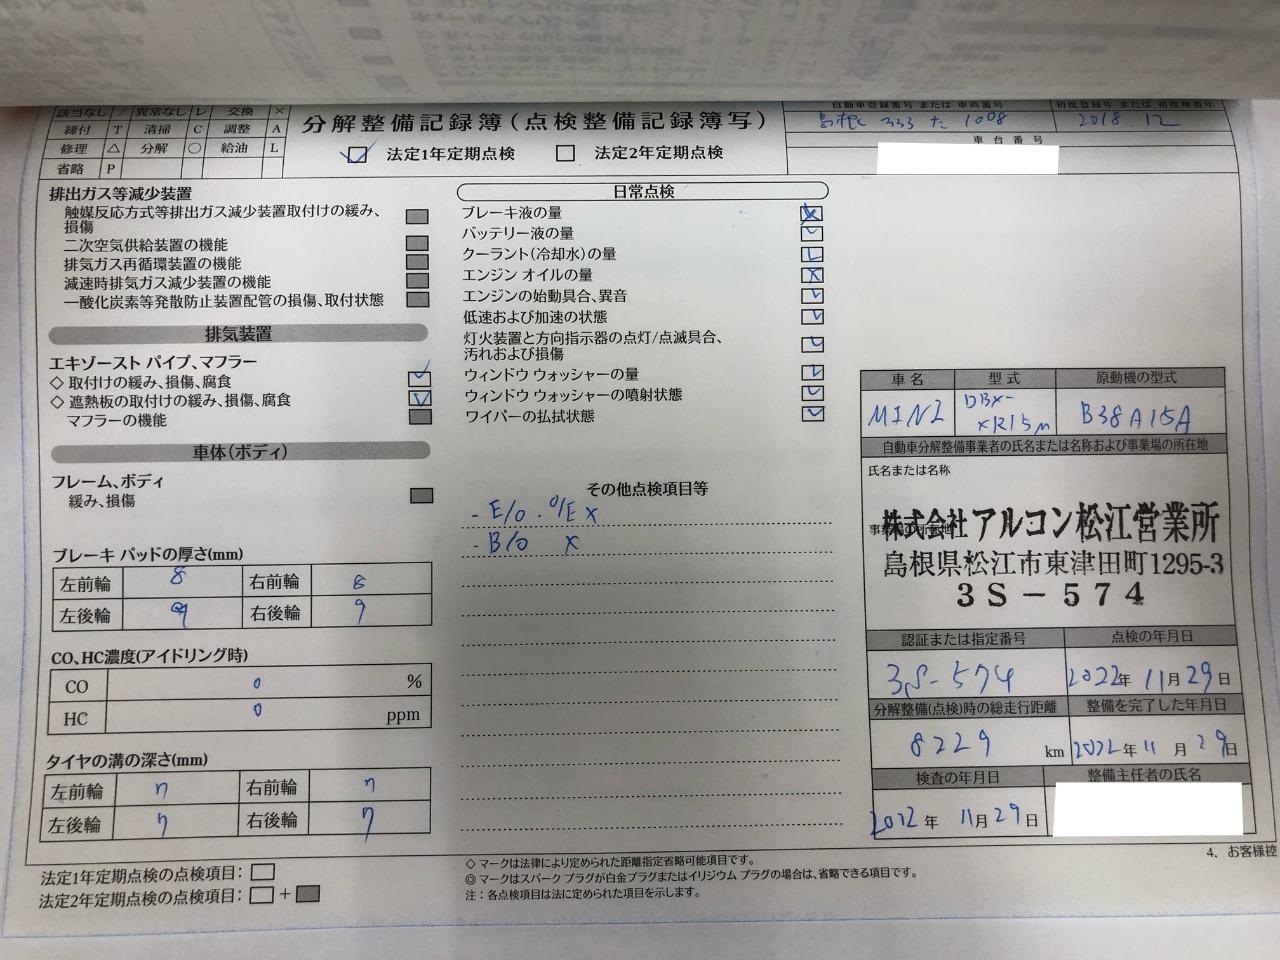 該当なし / 異常なし レ 交換 ×
締付 T 清掃 C 調整 A
修理 △ 分解 ○ 給油 L
省略 P
分解整備記録簿(点検整備記録簿写)
法定1年定期点検 法定2年定期点検
自動車登録番号 または 車両番号
島根 333 た 1008
初度登録年 または 初度検査年
2018.12
車台番号
排出ガス等減少装置
触媒反応方式等排出ガス減少装置取付けの緩み、
損傷
二次空気供給装置の機能
排気ガス再循環装置の機能
減速時排気ガス減少装置の機能
一酸化炭素等発散防止装置配管の損傷、取付状態
排気装置
エキゾースト パイプ、マフラー
◇ 取付けの緩み、損傷、腐食
◇ 遮熱板の取付けの緩み、損傷、腐食
マフラーの機能
車体(ボディ)
フレーム、ボディ
緩み、損傷
ブレーキ パッドの厚さ(mm)
左前輪 8 右前輪 8
左後輪 9 右後輪 9
CO、HC濃度(アイドリング時)
CO 0 %
HC 0 ppm
タイヤの溝の深さ(mm)
左前輪 7 右前輪 7
左後輪 7 右後輪 7
日常点検
ブレーキ液の量
バッテリー液の量
クーラント(冷却水)の量
エンジン オイルの量
エンジンの始動具合、異音
低速および加速の状態
灯火装置と方向指示器の点灯/点滅具合、
汚れおよび損傷
ウィンドウ ウォッシャーの量
ウィンドウ ウォッシャーの噴射状態
ワイパーの払拭状態
その他点検項目等
- E/O . O/E ×
- B/O ×
車名 型式 原動機の型式
MINI DBX-XR15M B38A15A
自動車分解整備事業者の氏名または名称および事業場の所在地
氏名または名称
株式会社アルコン松江営業所
島根県松江市東津田町1295-3
3S-574
認証または指定番号 点検の年月日
3S-574 2022年 11月29日
分解整備(点検)時の総走行距離 整備を完了した年月日
8229 km 2022年11月29日
検査の年月日 整備主任者の氏名
2022年 11月29日
4. お客様控
法定1年定期点検の点検項目:
法定2年定期点検の点検項目: +
◇ マークは法律により定められた距離指定省略可能項目です。
◎ マークはスパーク プラグが白金プラグまたはイリジウム プラグの場合は、省略できる項目です。
注:各点検項目は法に定められた項目を示します。